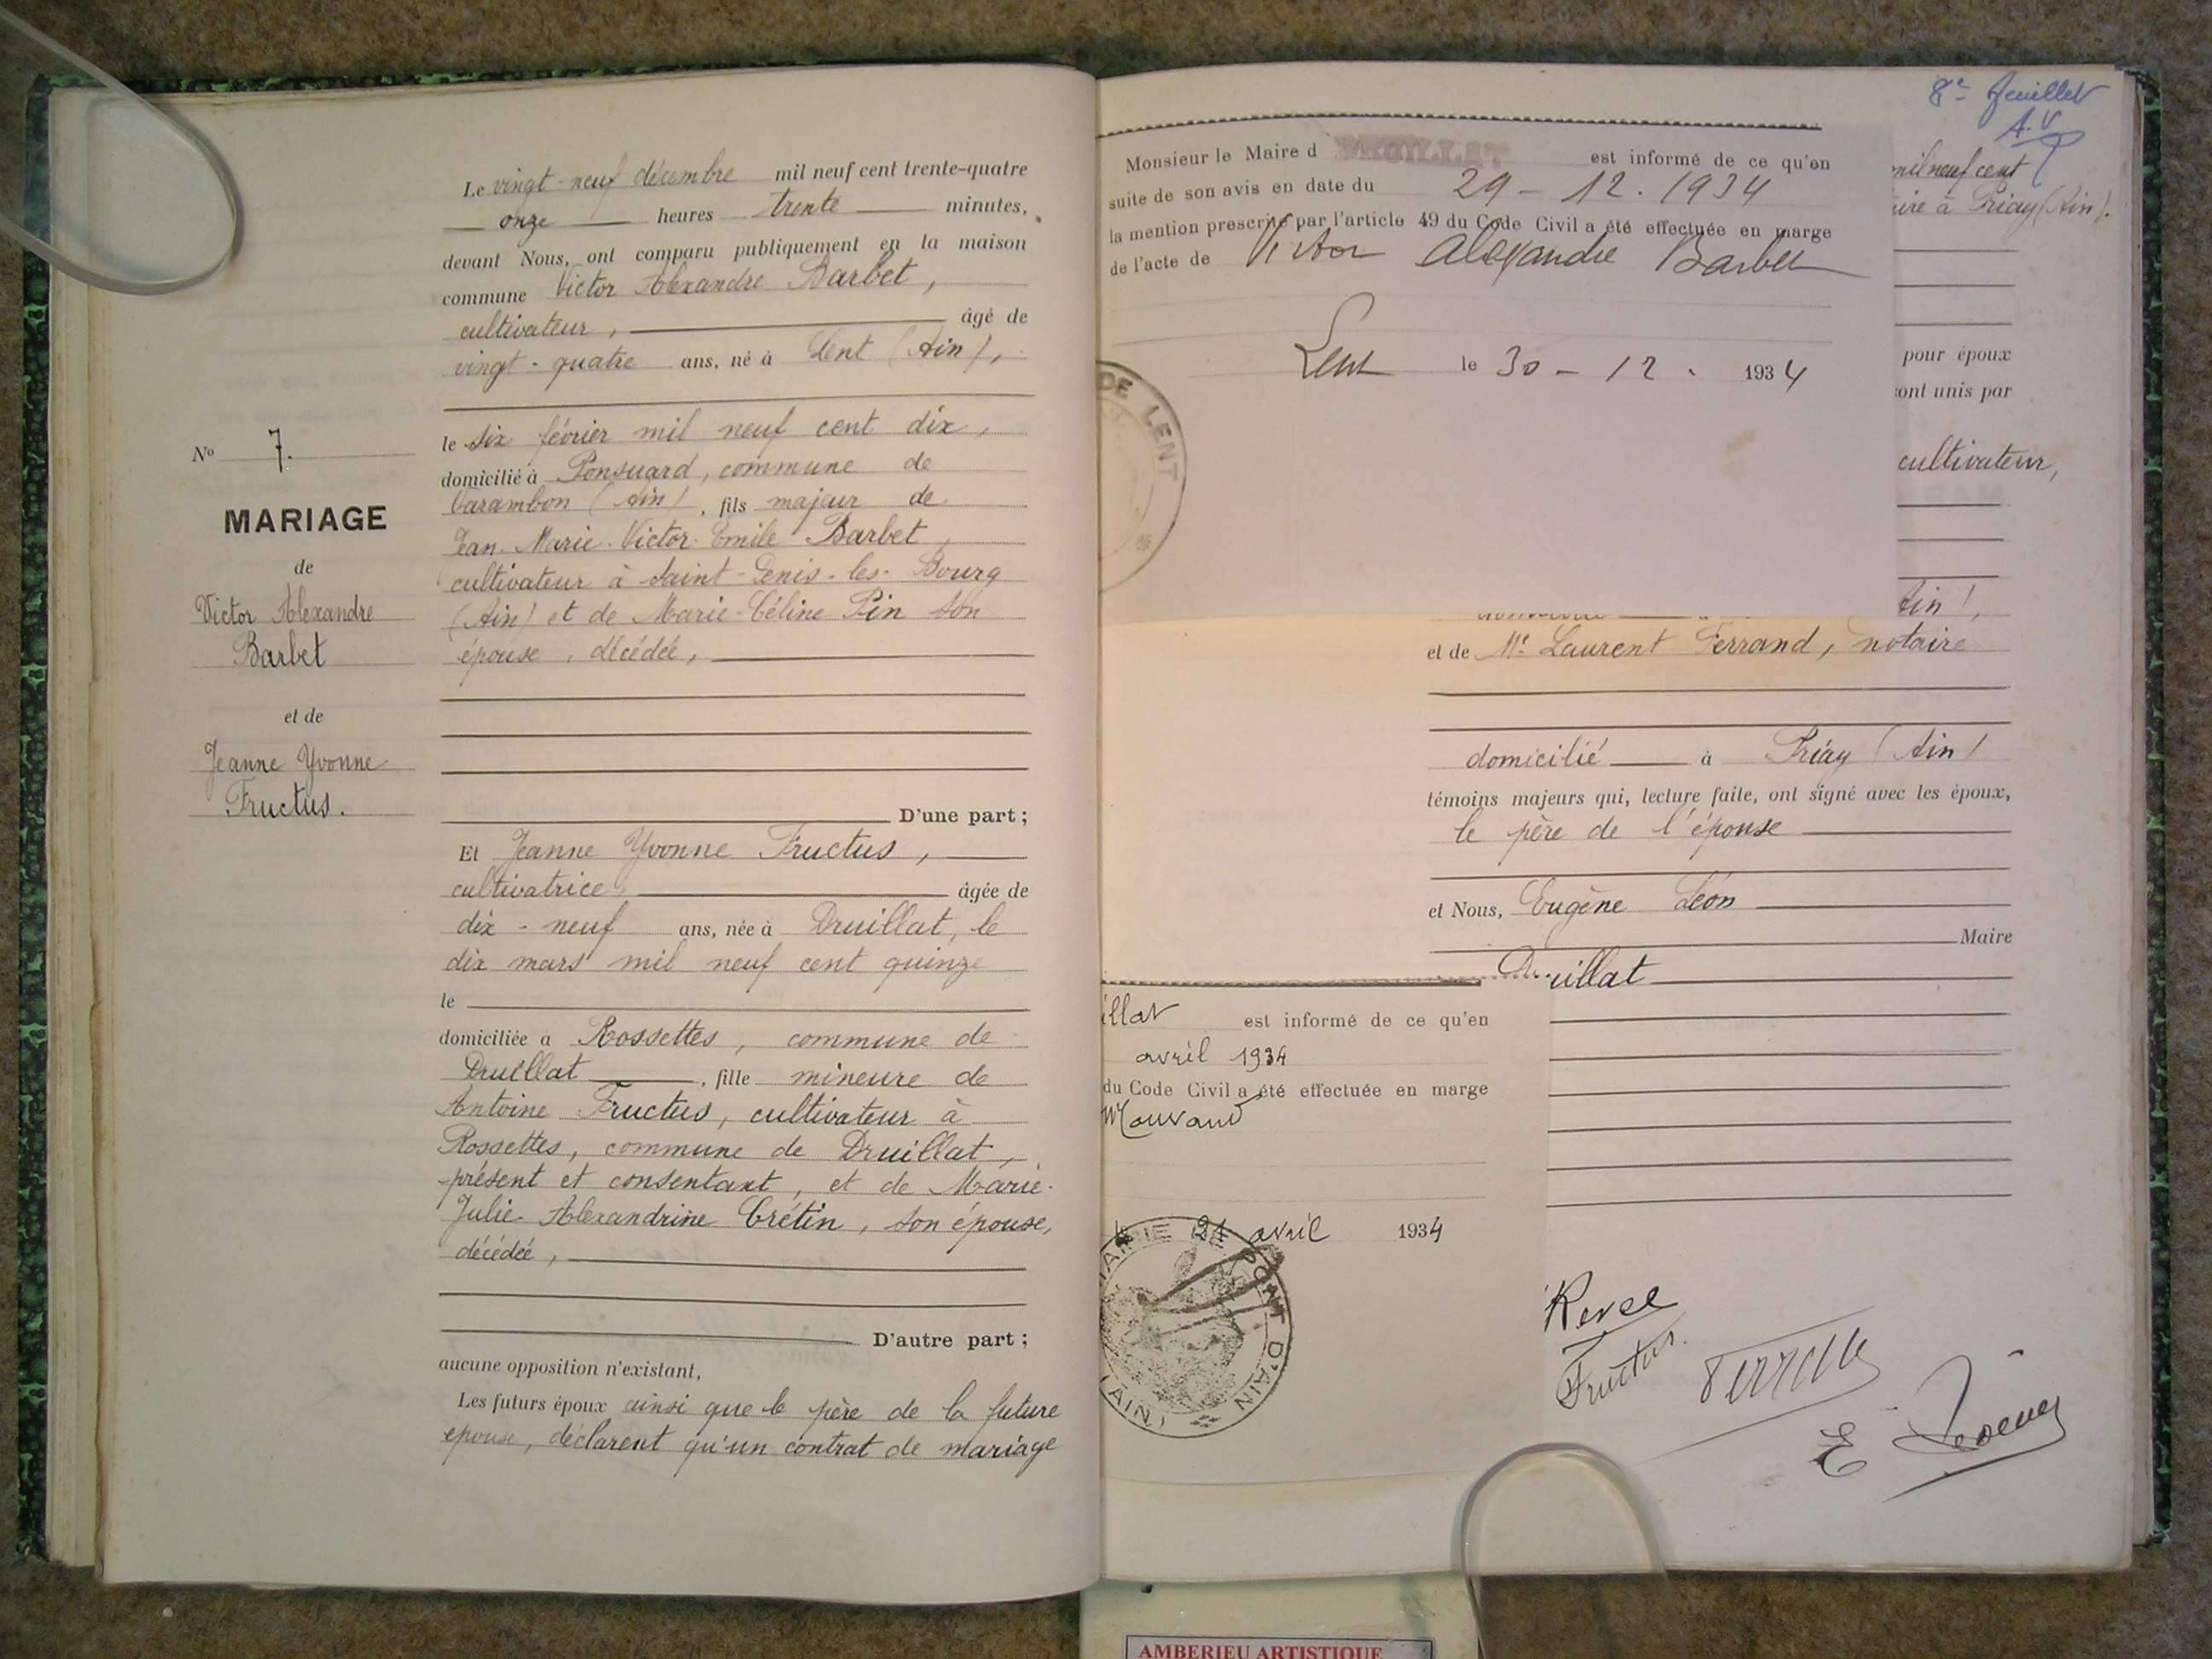 Le vingt-neuf décembre mil neuf cent trente-quatre
onze heures trente minutes,
devant Nous, ont comparu publiquement en la maison
commune Victor Alexandre Barbet,
cultivateur, âgé de
vingt-quatre ans, né à Lent (Ain),
le six février mil neuf cent dix,
domicilié à Ponsuard, commune de
Varambon (Ain), fils majeur de
Jean-Marie-Victor-Emile Barbet,
cultivateur à Saint-Denis-les-Bourg
(Ain) et de Marie-Céline Pin son
épouse, décédée,
D'une part;
Et Jeanne Yvonne Fructus,
cultivatrice, âgée de
dix-neuf ans, née à Druillat, le
dix mars mil neuf cent quinze
le
domiciliée à Rossettes, commune de
Druillat, fille mineure de
Antoine Fructus, cultivateur à
Rossettes, commune de Druillat,
présent et consentant, et de Marie-
Julie-Alexandrine Crétin, son épouse,
décédée,
D'autre part;
aucune opposition n'existant,
Les futurs époux ainsi que le père de la future
epouse, déclarent qu'un contrat de mariage
No 7.
MARIAGE
de
Victor Alexandre
Barbet
et de
Jeanne Yvonne
Fructus.
8e feuillet
A.V
Monsieur le Maire d DRUILLAT est informé de ce qu'en
suite de son avis en date du 29-12.1934
la mention prescrite par l'article 49 du Code Civil a été effectuée en marge
de l'acte de Victor Alexandre Barbet
Lent le 30-12. 1934
DE LENT
mil neuf cent
aire à Priay (Ain).
pour époux
sont unis par
cultivateur,
Ain),
et de Me Laurent Ferrand, notaire
domicilié à Priay (Ain)
témoins majeurs qui, lecture faite, ont signé avec les époux,
le père de l'épouse
et Nous, Eugène Léon
Maire
Druillat
illat est informé de ce qu'en
avril 1934
du Code Civil a été effectuée en marge
le 21 avril 1934
MAIRIE DE PONT D'AIN
(AIN)
Revel
Fructus.
AMBERIEU ARTISTIQUE